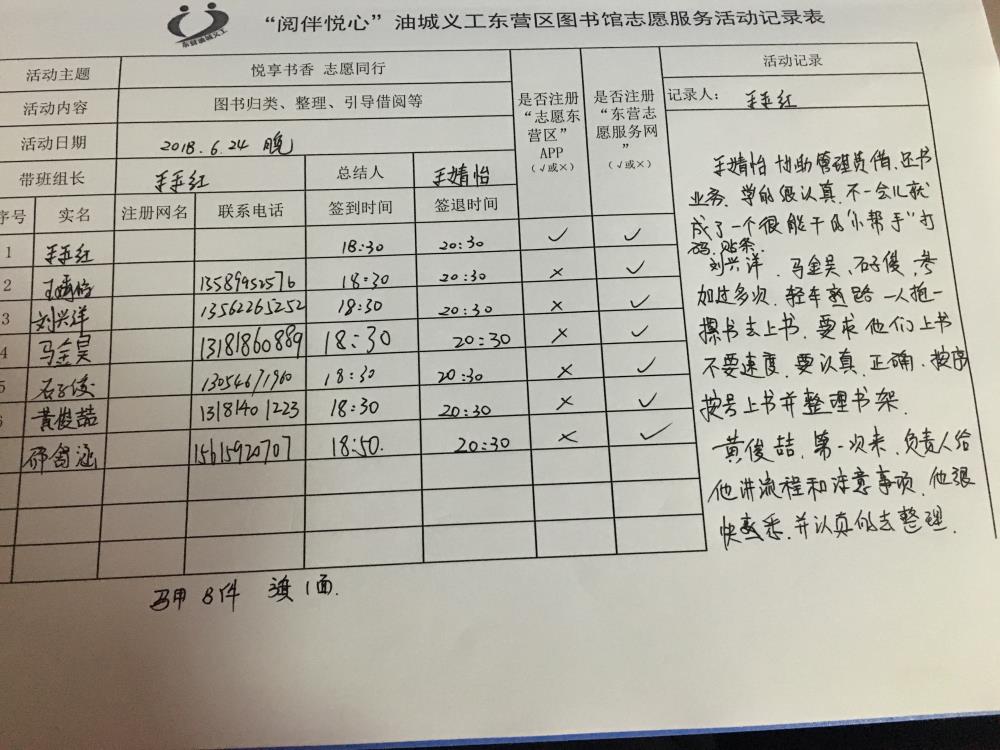 东营油城义工
“阅伴悦心”油城义工东营区图书馆志愿服务活动记录表
活动主题 悦享书香 志愿同行
活动内容 图书归类、整理、引导借阅等
活动日期 2018.6.24 晚
带班组长 王玉红 总结人 王婧怡
是否注册“志愿东营区”APP(√或×)
是否注册“东营志愿服务网”(√或×)
序号 实名 注册网名 联系电话 签到时间 签退时间
1 王玉红 18:30 20:30 √ √
2 王婧怡 13589952576 18:30 20:30 × √
3 刘兴洋 13562265252 18:30 20:30 × √
4 马金昊 13181860889 18:30 20:30 × √
5 石子俊 13054671960 18:30 20:30 × √
6 黄俊喆 13181401223 18:30 20:30 × √
邵舒涵 15615920707 18:50. 20:30 × √
活动记录
记录人: 王玉红
王婧怡 协助管理员借、还书
业务、学的很认真、不一会儿就
成了一个很能干的“小帮手”打
码、贴条.
刘兴洋、马金昊、石子俊、参
加过多次、轻车熟路 一人抱一
摞书去上书、要求他们上书
不要速度、要认真、正确、按序
按号上书并整理书架.
黄俊喆、第一次来、负责人给
他讲流程和注意事项、他很
快熟悉、并认真的去整理.
马甲 8件 旗 1面.